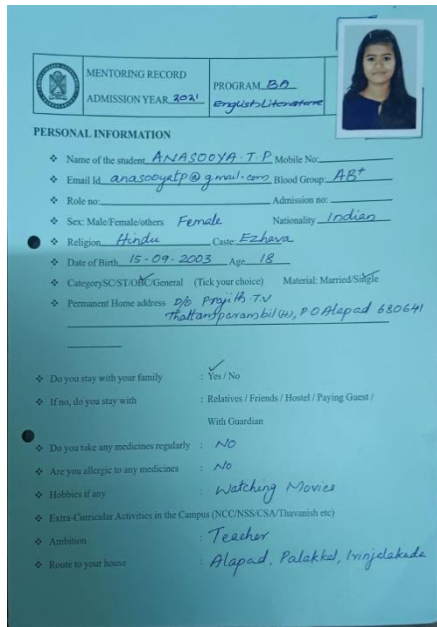 MENTORING RECORD
ADMISSION YEAR 2021
PROGRAM BA
English Literature
PERSONAL INFORMATION
❖ Name of the student ANASOOYA.T.P Mobile No:
❖ Email Id anasooyatp@gmail.com Blood Group: AB+
❖ Role no: Admission no:
❖ Sex: Male/Female/others Female Nationality Indian
❖ Religion Hindu Caste: Ezhava
❖ Date of Birth 15-09-2003 Age 18
❖ CategorySC/ST/OBC/General (Tick your choice) Material: Married/Single
❖ Permanent Home address D/o Prajith.T.V
Thattamparambil(H), P.O Alapad 680641
❖ Do you stay with your family : Yes / No
❖ If no, do you stay with : Relatives / Friends / Hostel / Paying Guest /
With Guardian
❖ Do you take any medicines regularly : NO
❖ Are you allergic to any medicines : No
❖ Hobbies if any : Watching Movies
❖ Extra-Curricular Activities in the Campus (NCC/NSS/CSA/Thavanish etc)
❖ Ambition : Teacher
❖ Route to your house : Alapad, Palakkal, Irinjalakuda